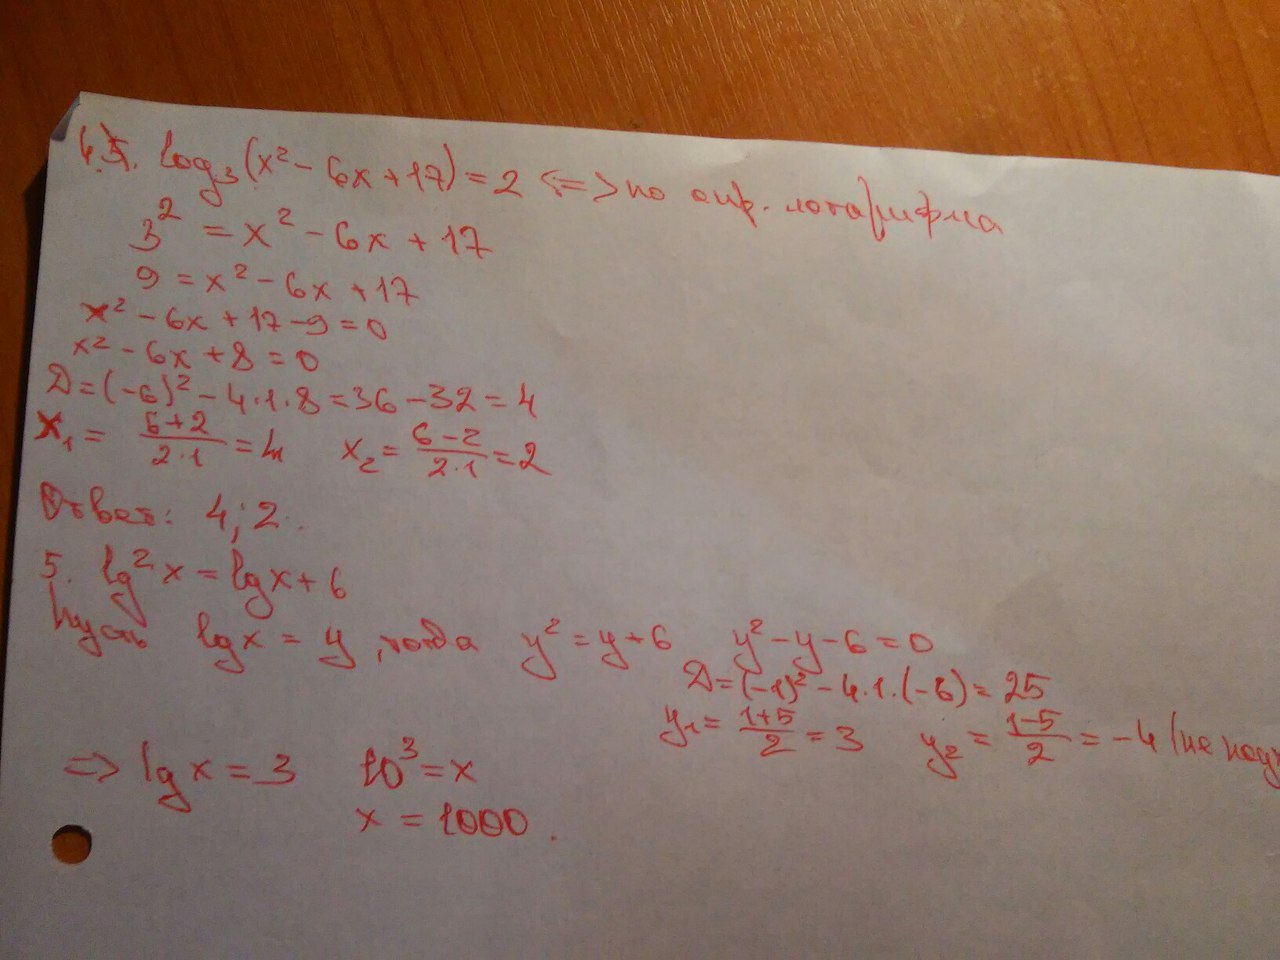 4.5. log₃(x² - 6x + 17) = 2 <=> по опр. логарифма
3² = x² - 6x + 17
9 = x² - 6x + 17
x² - 6x + 17 - 9 = 0
x² - 6x + 8 = 0
D = (-6)² - 4·1·8 = 36 - 32 = 4
x₁ = (6+2)/(2·1) = 4 x₂ = (6-2)/(2·1) = 2
Ответ: 4; 2.
5. lg²x = lgx + 6
Пусть lgx = y, тогда y² = y + 6 y² - y - 6 = 0
D = (-1)² - 4·1·(-6) = 25
y₁ = (1+5)/2 = 3 y₂ = (1-5)/2 = -4 (не
=> lgx = 3 10³ = x
x = 1000.